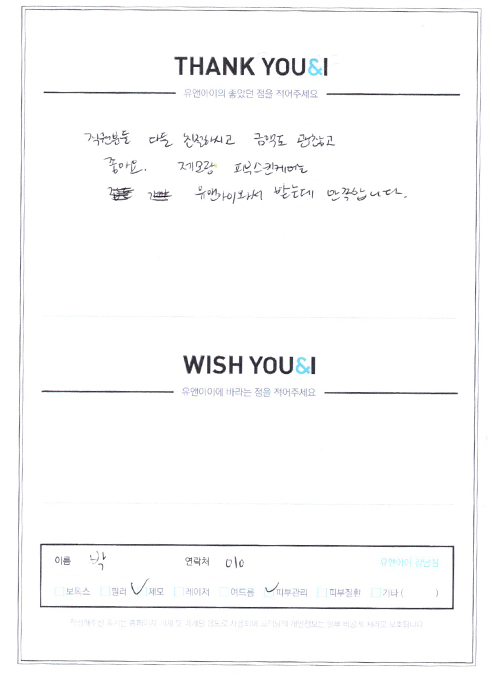 THANK YOU&I
유앤아이의 좋았던 점을 적어주세요
직원분들 다들 친절하시고 금액도 괜찮고
좋아요. 제모랑 피부스킨케어는
유앤아이와서 받는데 만족합니다.
WISH YOU&I
유앤아이에 바라는 점을 적어주세요
이름 박 연락처 010 유앤아이 강남점
보톡스 필러 제모 레이저 여드름 피부관리 피부질환 기타 ( )